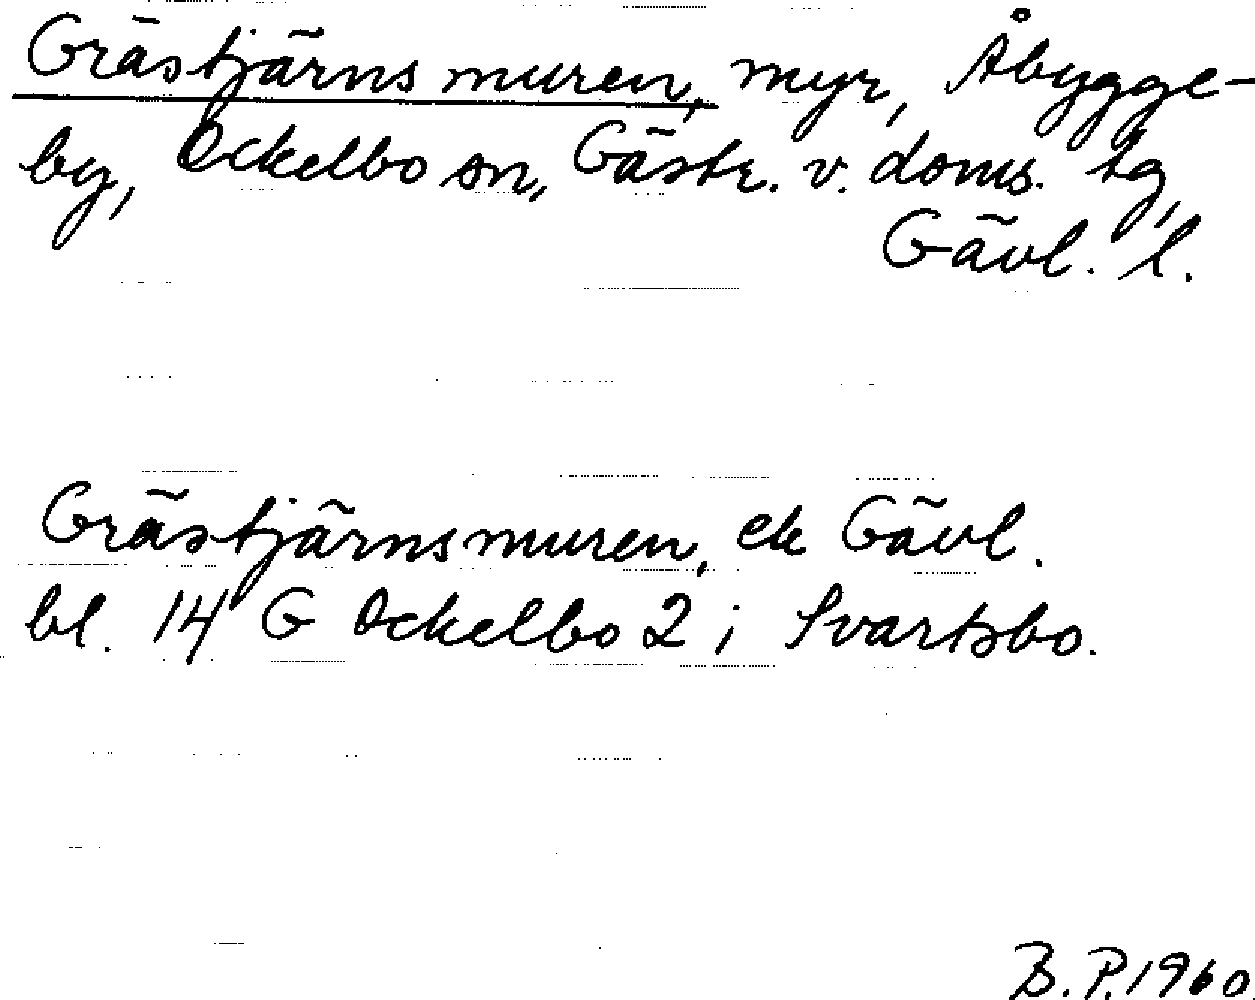 Grästjärnsmuren, myr, Åbygge-
by, Ockelbo sn, Gästr. v. doms. tg,
Gävl. l.
Grästjärnsmuren, ek Gävl.
bl. 14 G Ockelbo 2 i Svartsbo.
B.P. 1960.